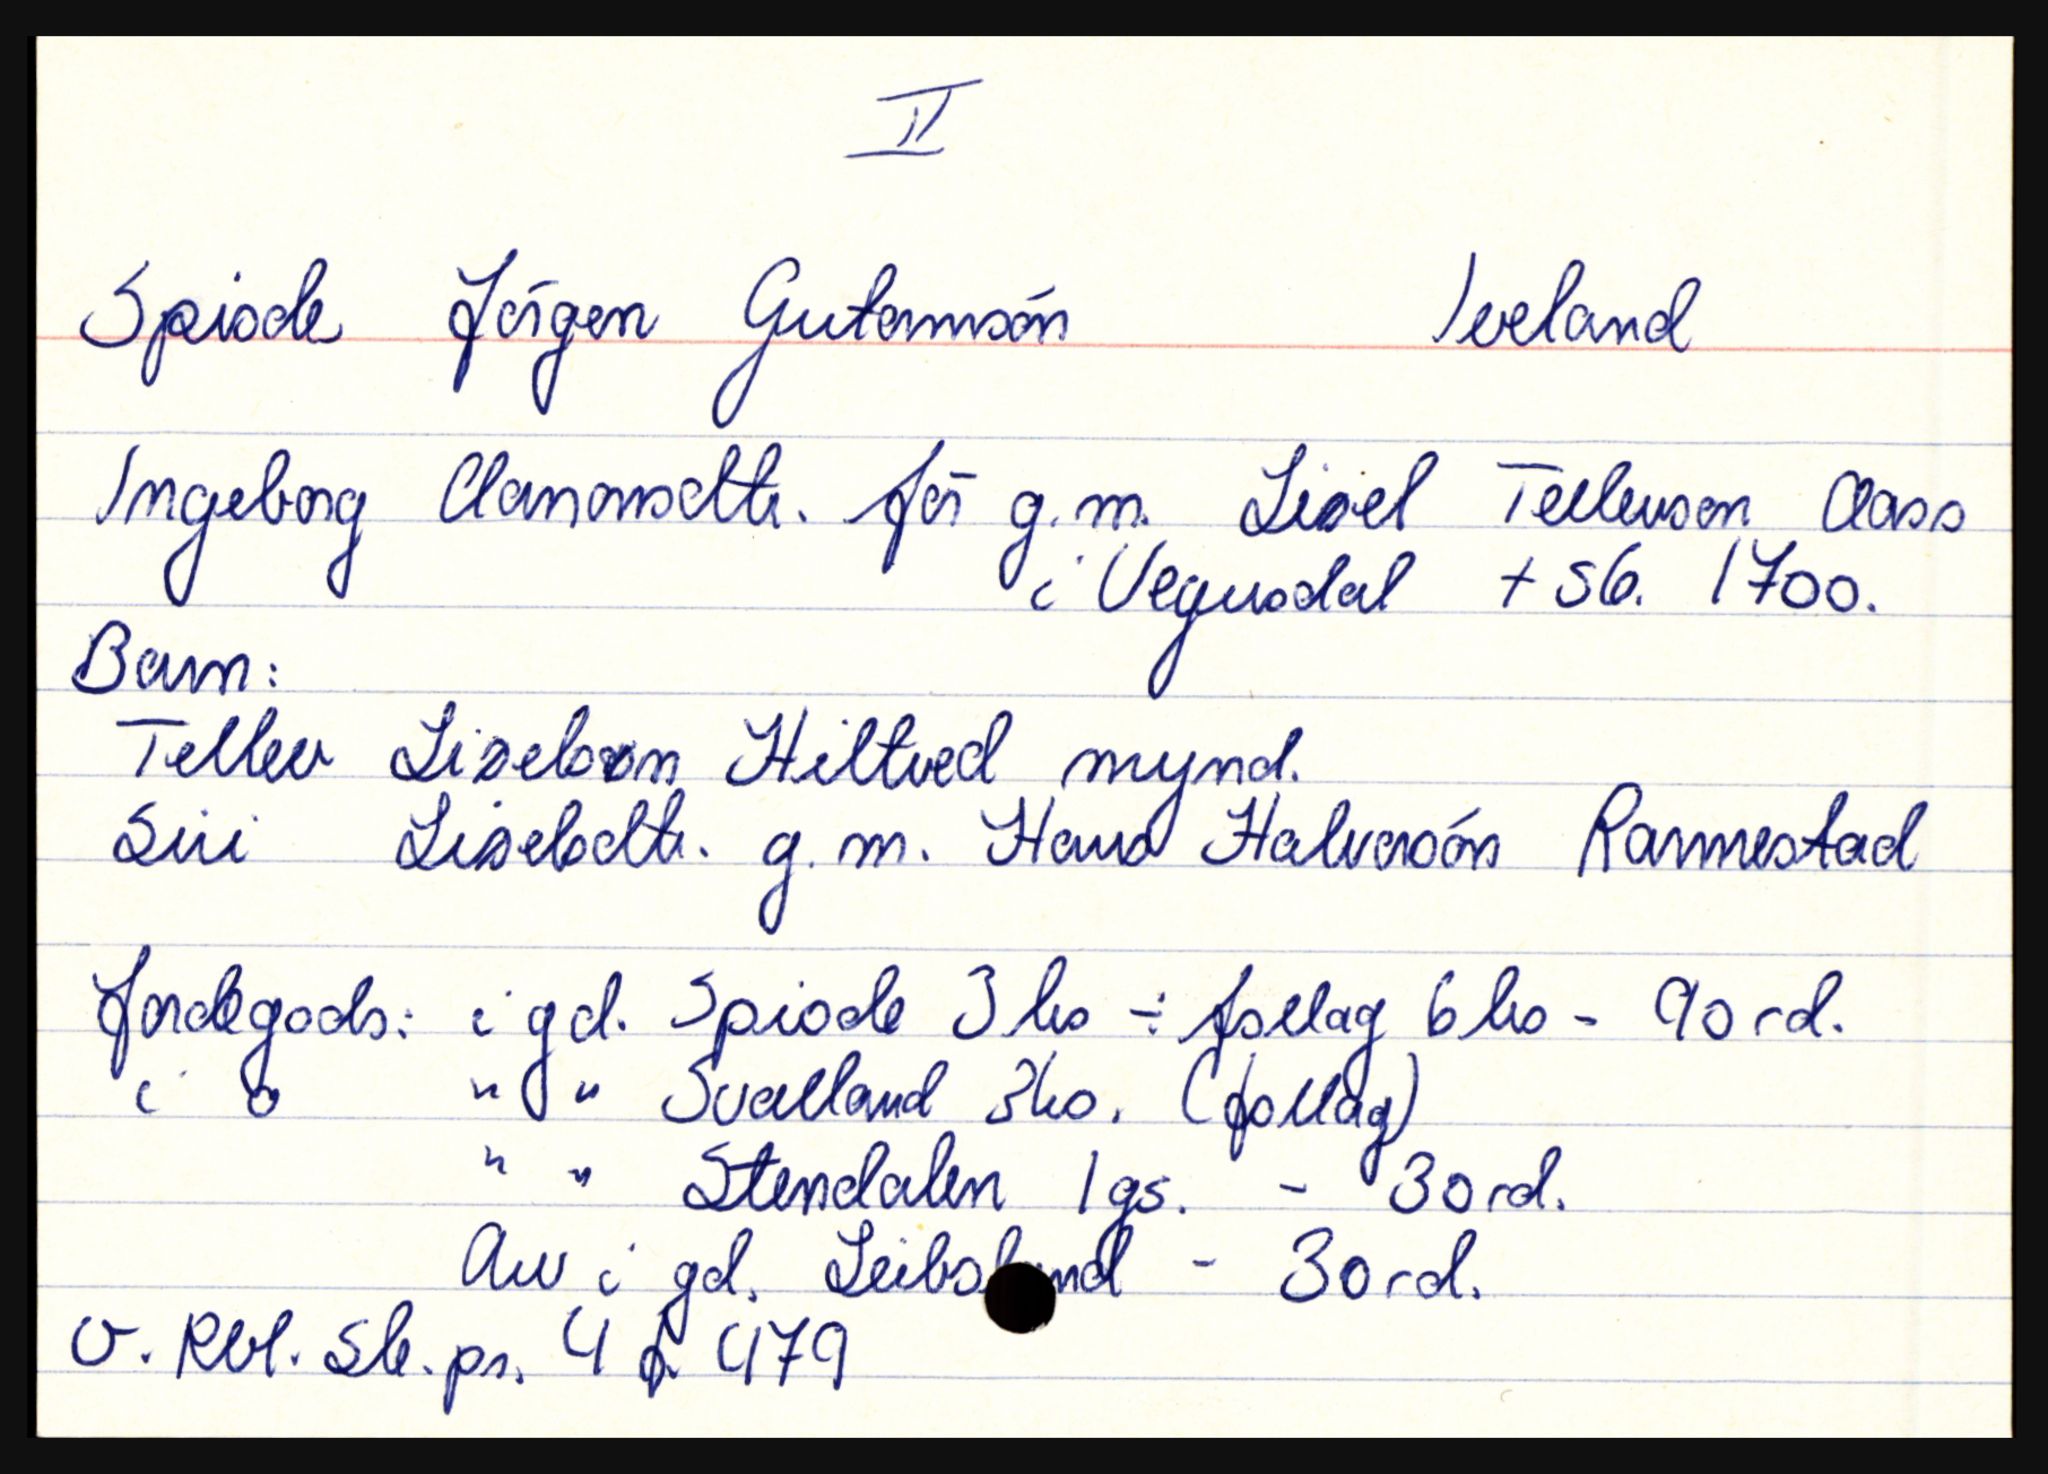 II
Spiode Jörgen Gutormsön Iveland
Ingeborg Aanonsdtr. för g.m. Lisel Tellevsen Aass
i Vegusdal + sb. 1700.
Barn:
Tellev Liselsson Hiltved mynd.
Siri Liselsdtr. g.m. Haus Halvorsön Rannestad
Jordegods: i gd. Spiode 3 hs ÷ follag 6 hs - 90 rd.
i o " " Svalland 3 hs. (follag)
" " Stendalen 1 gs. - 30 rd.
Arv i gd. Leibsland - 30 rd.
v. Rbl. Sk. pr. 4 f. 479